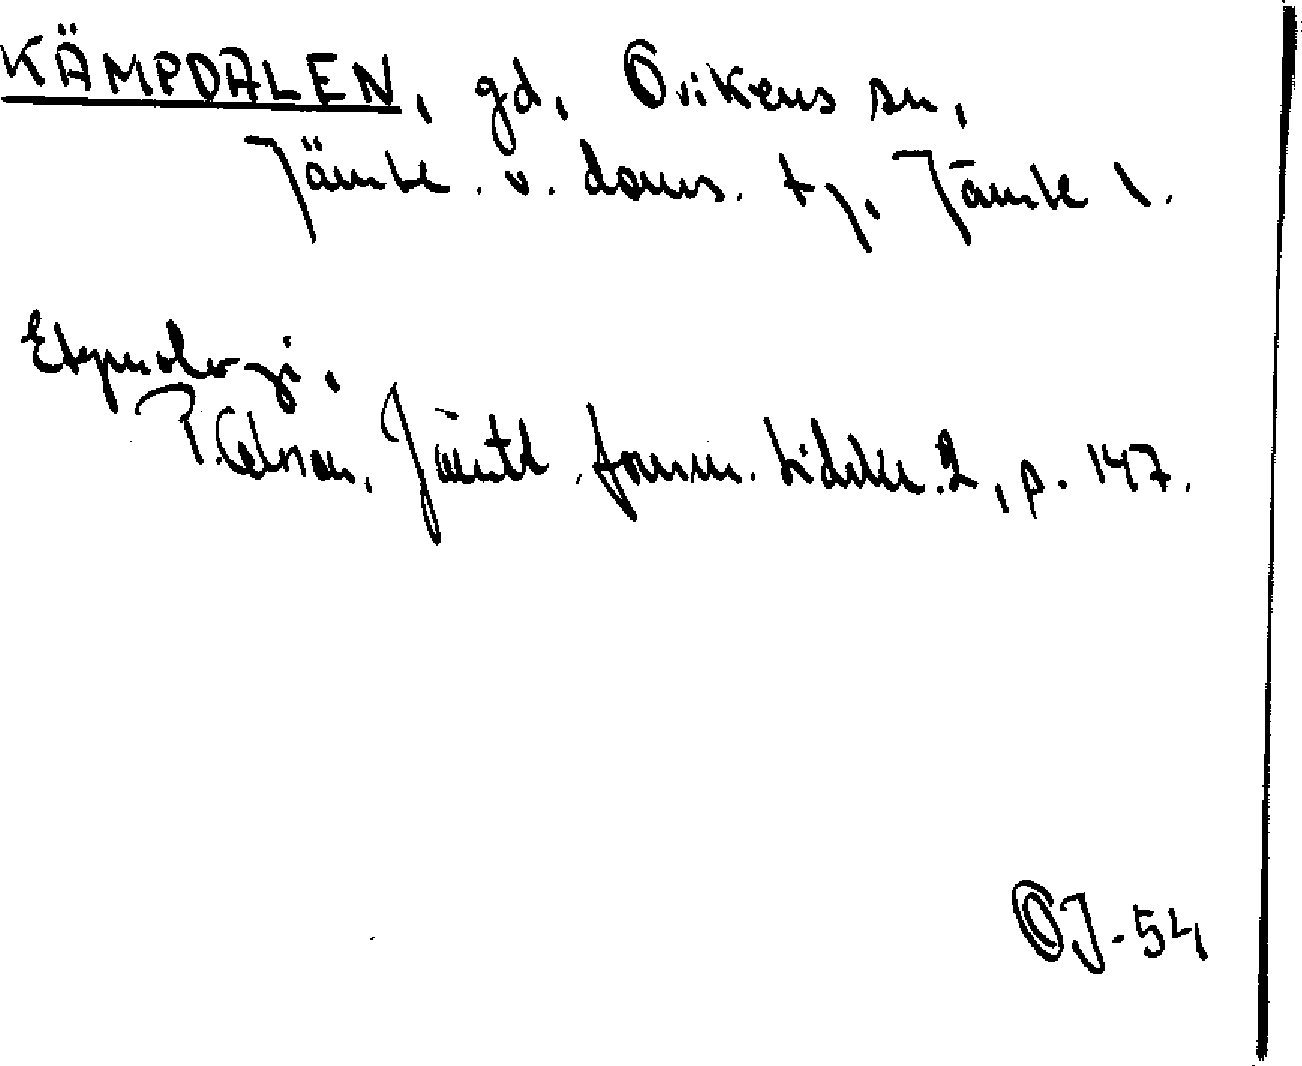 KÄMPDALEN, gd, Ovikens sn,
Jämtl. v. doms. tj. Jämtl l.
Etymologi.
P. Olsson, Jämtl. fornm. tidskr. 2, p. 147.
OJ-54